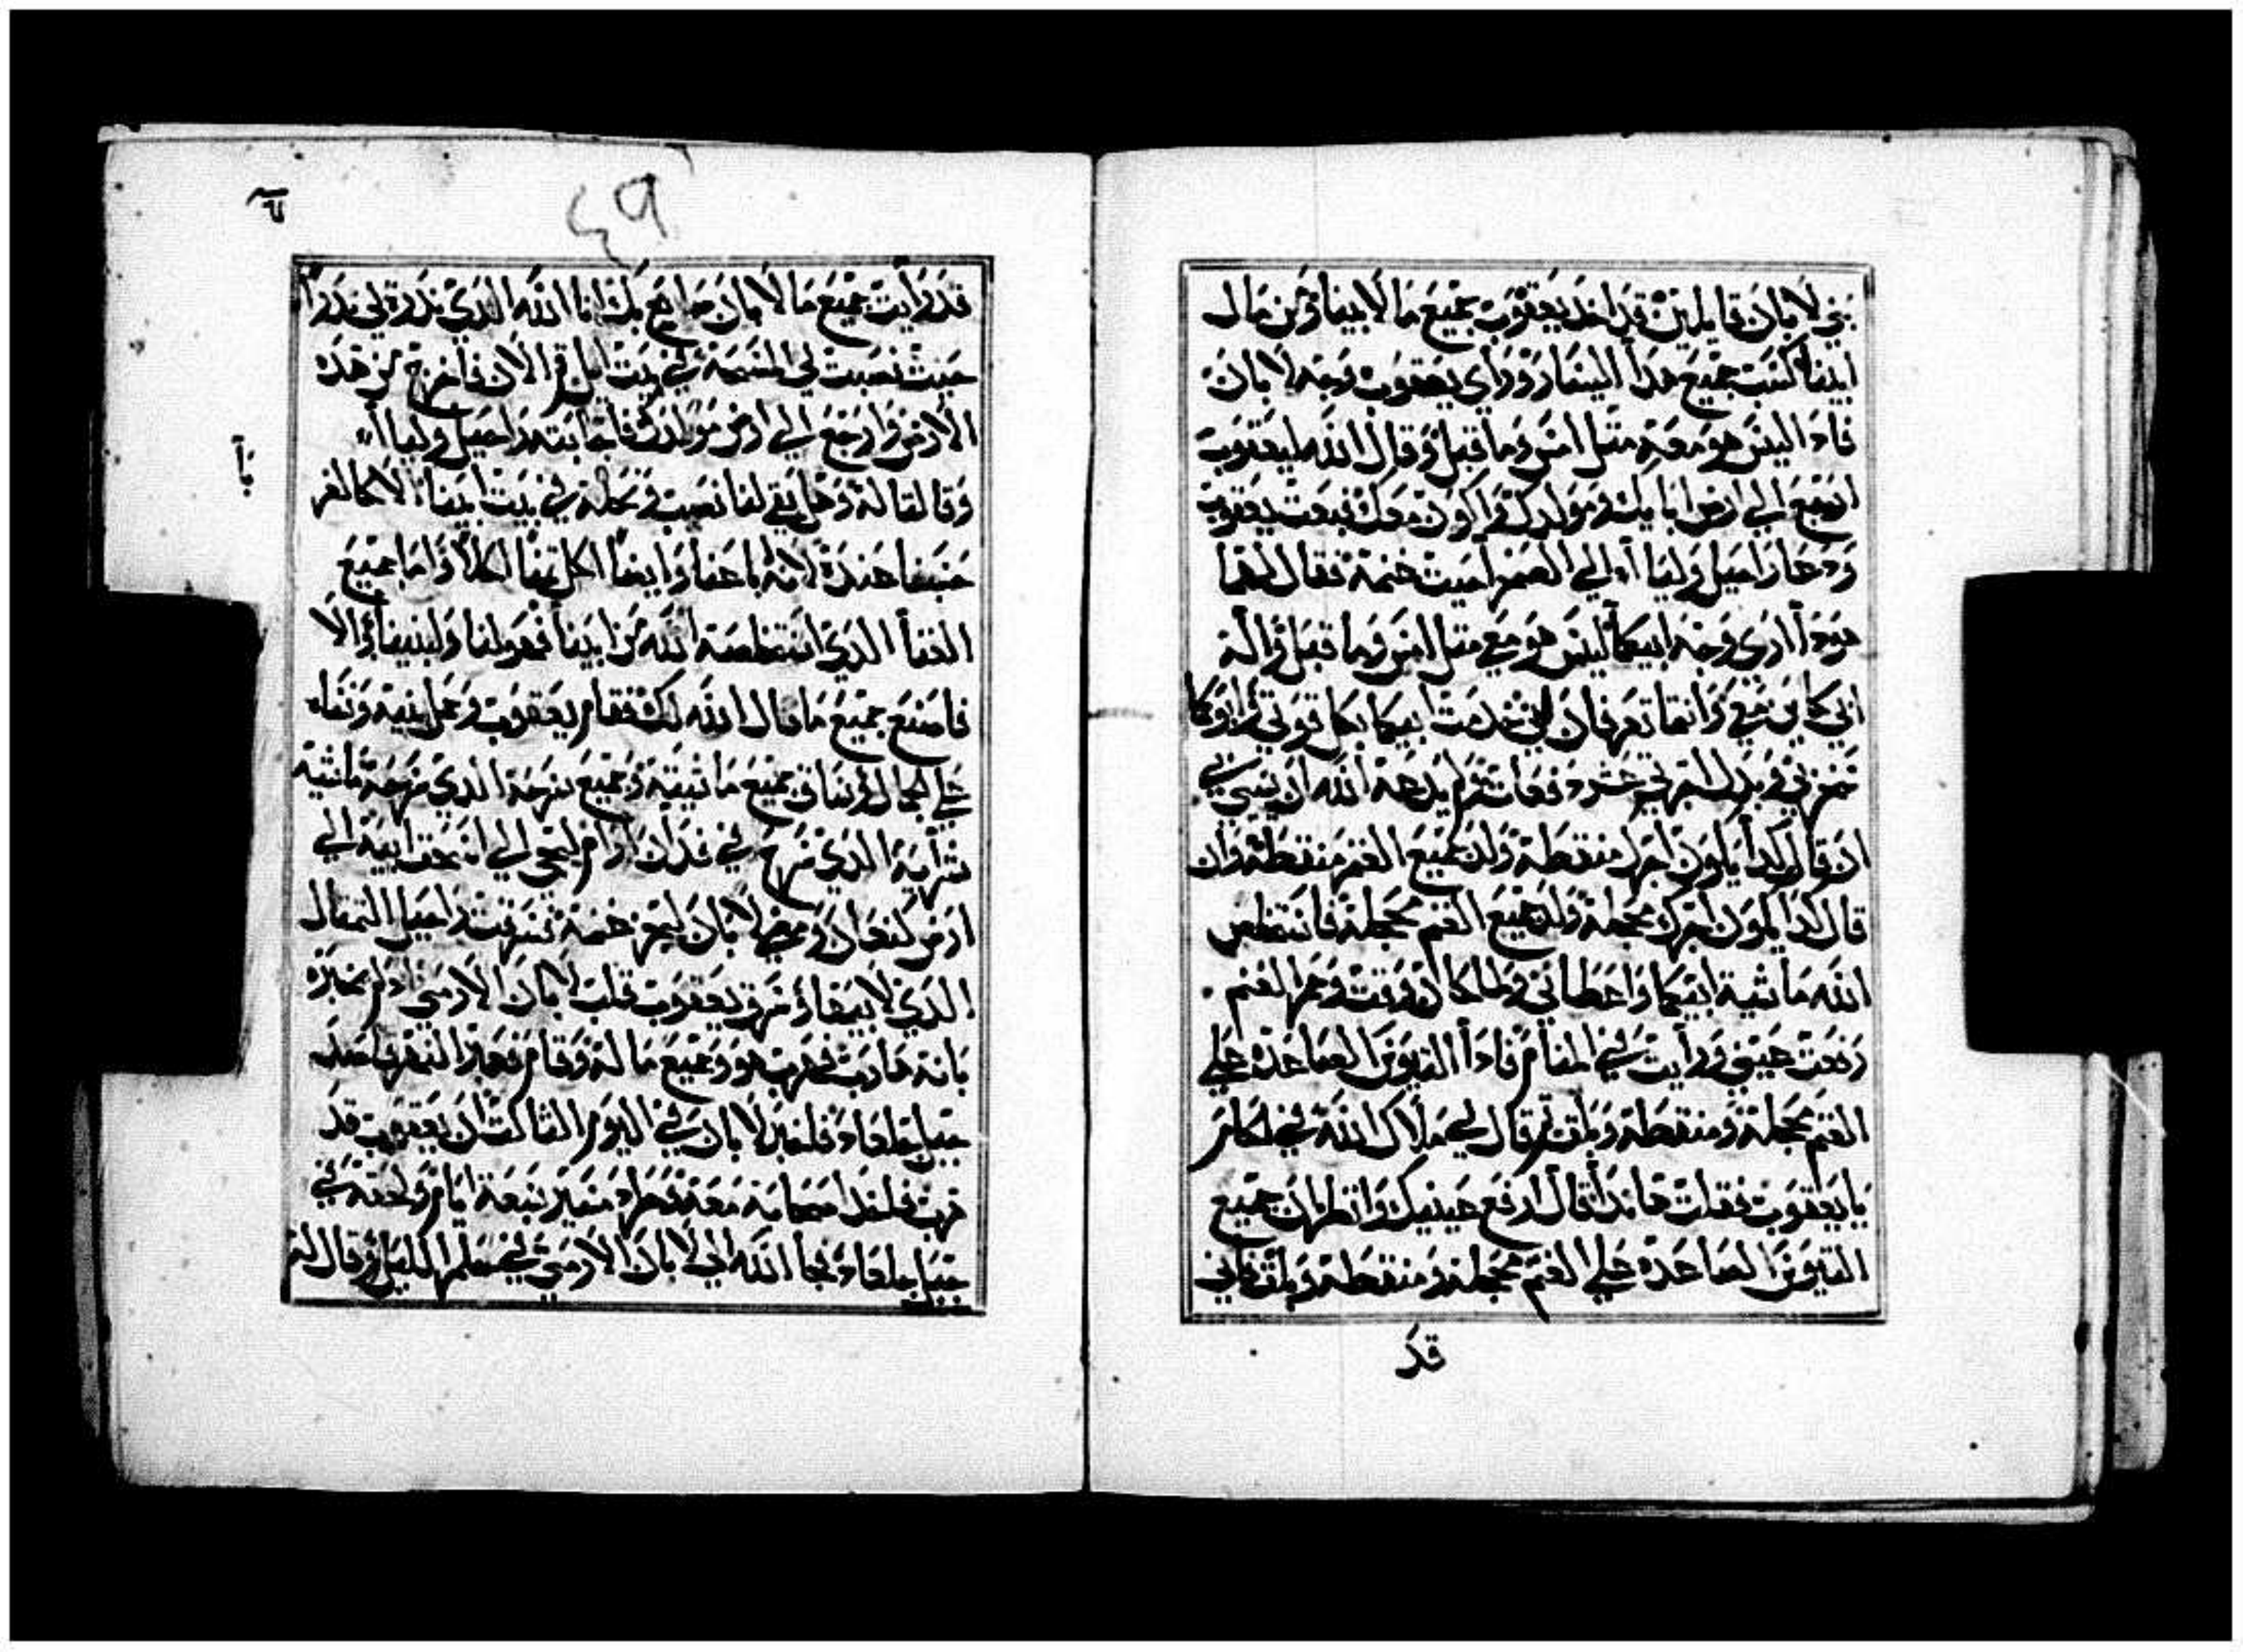 بني لابان قايلين قد اخد يعقوب جميع ما لابينا ومن مال
ابينا كسب جميع هدا اليسار وراي يعقوب وجه لابان
فادا ليس هو معه متل امس وما قبل وقال الله ليعقوب
ارجع الي ارض ابايك ومولدك واكون معك فبعت يعقوب
ودعا راحيل وليا الي الصحرا حيت غنمه فقال لهما
هودا اري وجه ابيكما ليس هو معي متل امس وما قبل واله
ابي كاين معي وانتما تعرفان انني خدمت ابيكما بكل قوتي وابوكما
سخر بي وبدل اجرتي عشر دفعات ولم يدعه الله ان يسي بي
ان قال كدا يكون اجرك منقطه ولد جميع الغنم منقطه وان
قال كدا يكون اجرك محجله ولد جميع الغنم محجله فاستخلص
الله ماشية ابيكما واعطاني ولما كان وقت وحم الغنم
رفعت عيني ورايت في المنام فادا التيوس الصاعده علي
الغنم محجله ومنقطه وبلق تم قال لي ملاك الله في الحلم
يا يعقوب فقلت هاندا قال ارفع عينيك وانظر ان جميع
التيوس الصاعده علي الغنم محجله ومنقطه وبلق فاني
قد
٤٩
قد رايت جميع ما لابان صانع بك انا الله الدي ندرت لي ندرا
حيت نصبت لي المسحه في بيت ايل قم الان فاخرج من هده
الارض وارجع الي ارض مولدك فاجابته راحيل وليا
وقالتا له وهل بقي لنا نصيب ونحله في بيت ابينا الا كالغر
حسبنا عنده لانه باعنا وايضا اكل تمننا اكلا واما جميع
الغنا الدي استخلصه الله من ابينا فهو لنا ولبنينا والا
فاصنع جميع ما قال الله لك فقام يعقوب وحمل بنيه ونساه
علي الجمال وساق جميع ماشيته وجميع سرحه الدي سرحه ماشية
شرايه الدي سرح في فدان ارام ليجي الي اسحق ابيه الي
ارض كنعان ومضي لابان ليجز غنمه فسرقت راحيل التمتال
الدي لابيها وسرق يعقوب قلب لابان الارمني ادلم يخبره
بانه هارب فهرب هو وجميع ما له وقام فجاز النهر فاصد
جبل جلعاد فاخبر لابان في اليوم التالت ان يعقوب قد
هرب فاخد اصحابه معه وطراد مسير سبعة ايام ولحقه في
جبل جلعاد فجا الله الي لابان الارمني في حلم الليل وقال له